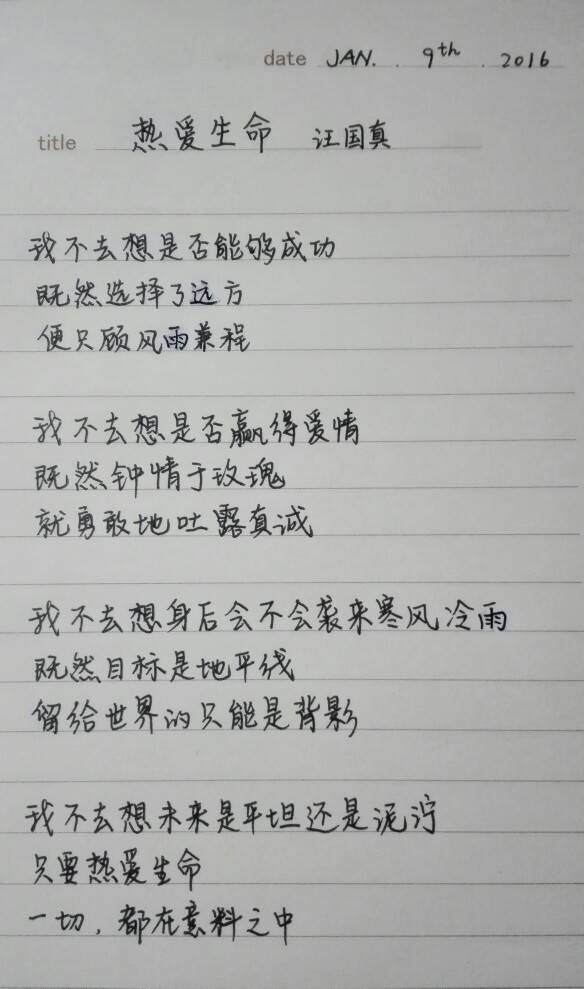 date JAN. . 9th . 2016
title 热爱生命 汪国真
我不去想是否能够成功
既然选择了远方
便只顾风雨兼程
我不去想是否赢得爱情
既然钟情于玫瑰
就勇敢地吐露真诚
我不去想身后会不会袭来寒风冷雨
既然目标是地平线
留给世界的只能是背影
我不去想未来是平坦还是泥泞
只要热爱生命
一切，都在意料之中